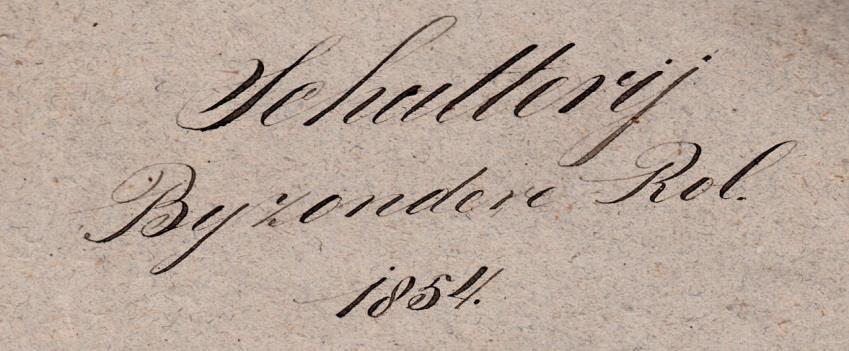 Schutterij
Byzondere Rol.
1854.